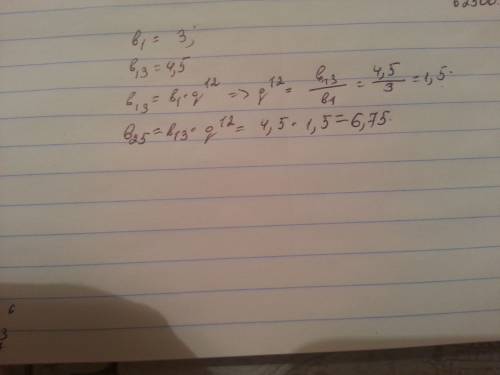 62300.
b₁ = 3;
b₁₃ = 4,5
b₁₃ = b₁ · q¹² => q¹² = b₁₃/b₁ = 4,5/3 = 1,5.
b₂₅ = b₁₃ · q¹² = 4,5 · 1,5 = 6,75.
6
3